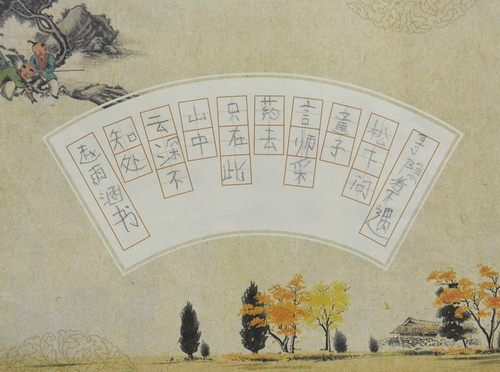 寻隐者不遇
松下问
童子
言师采
药去
只在此
山中
云深不
知处
赵雨涵书